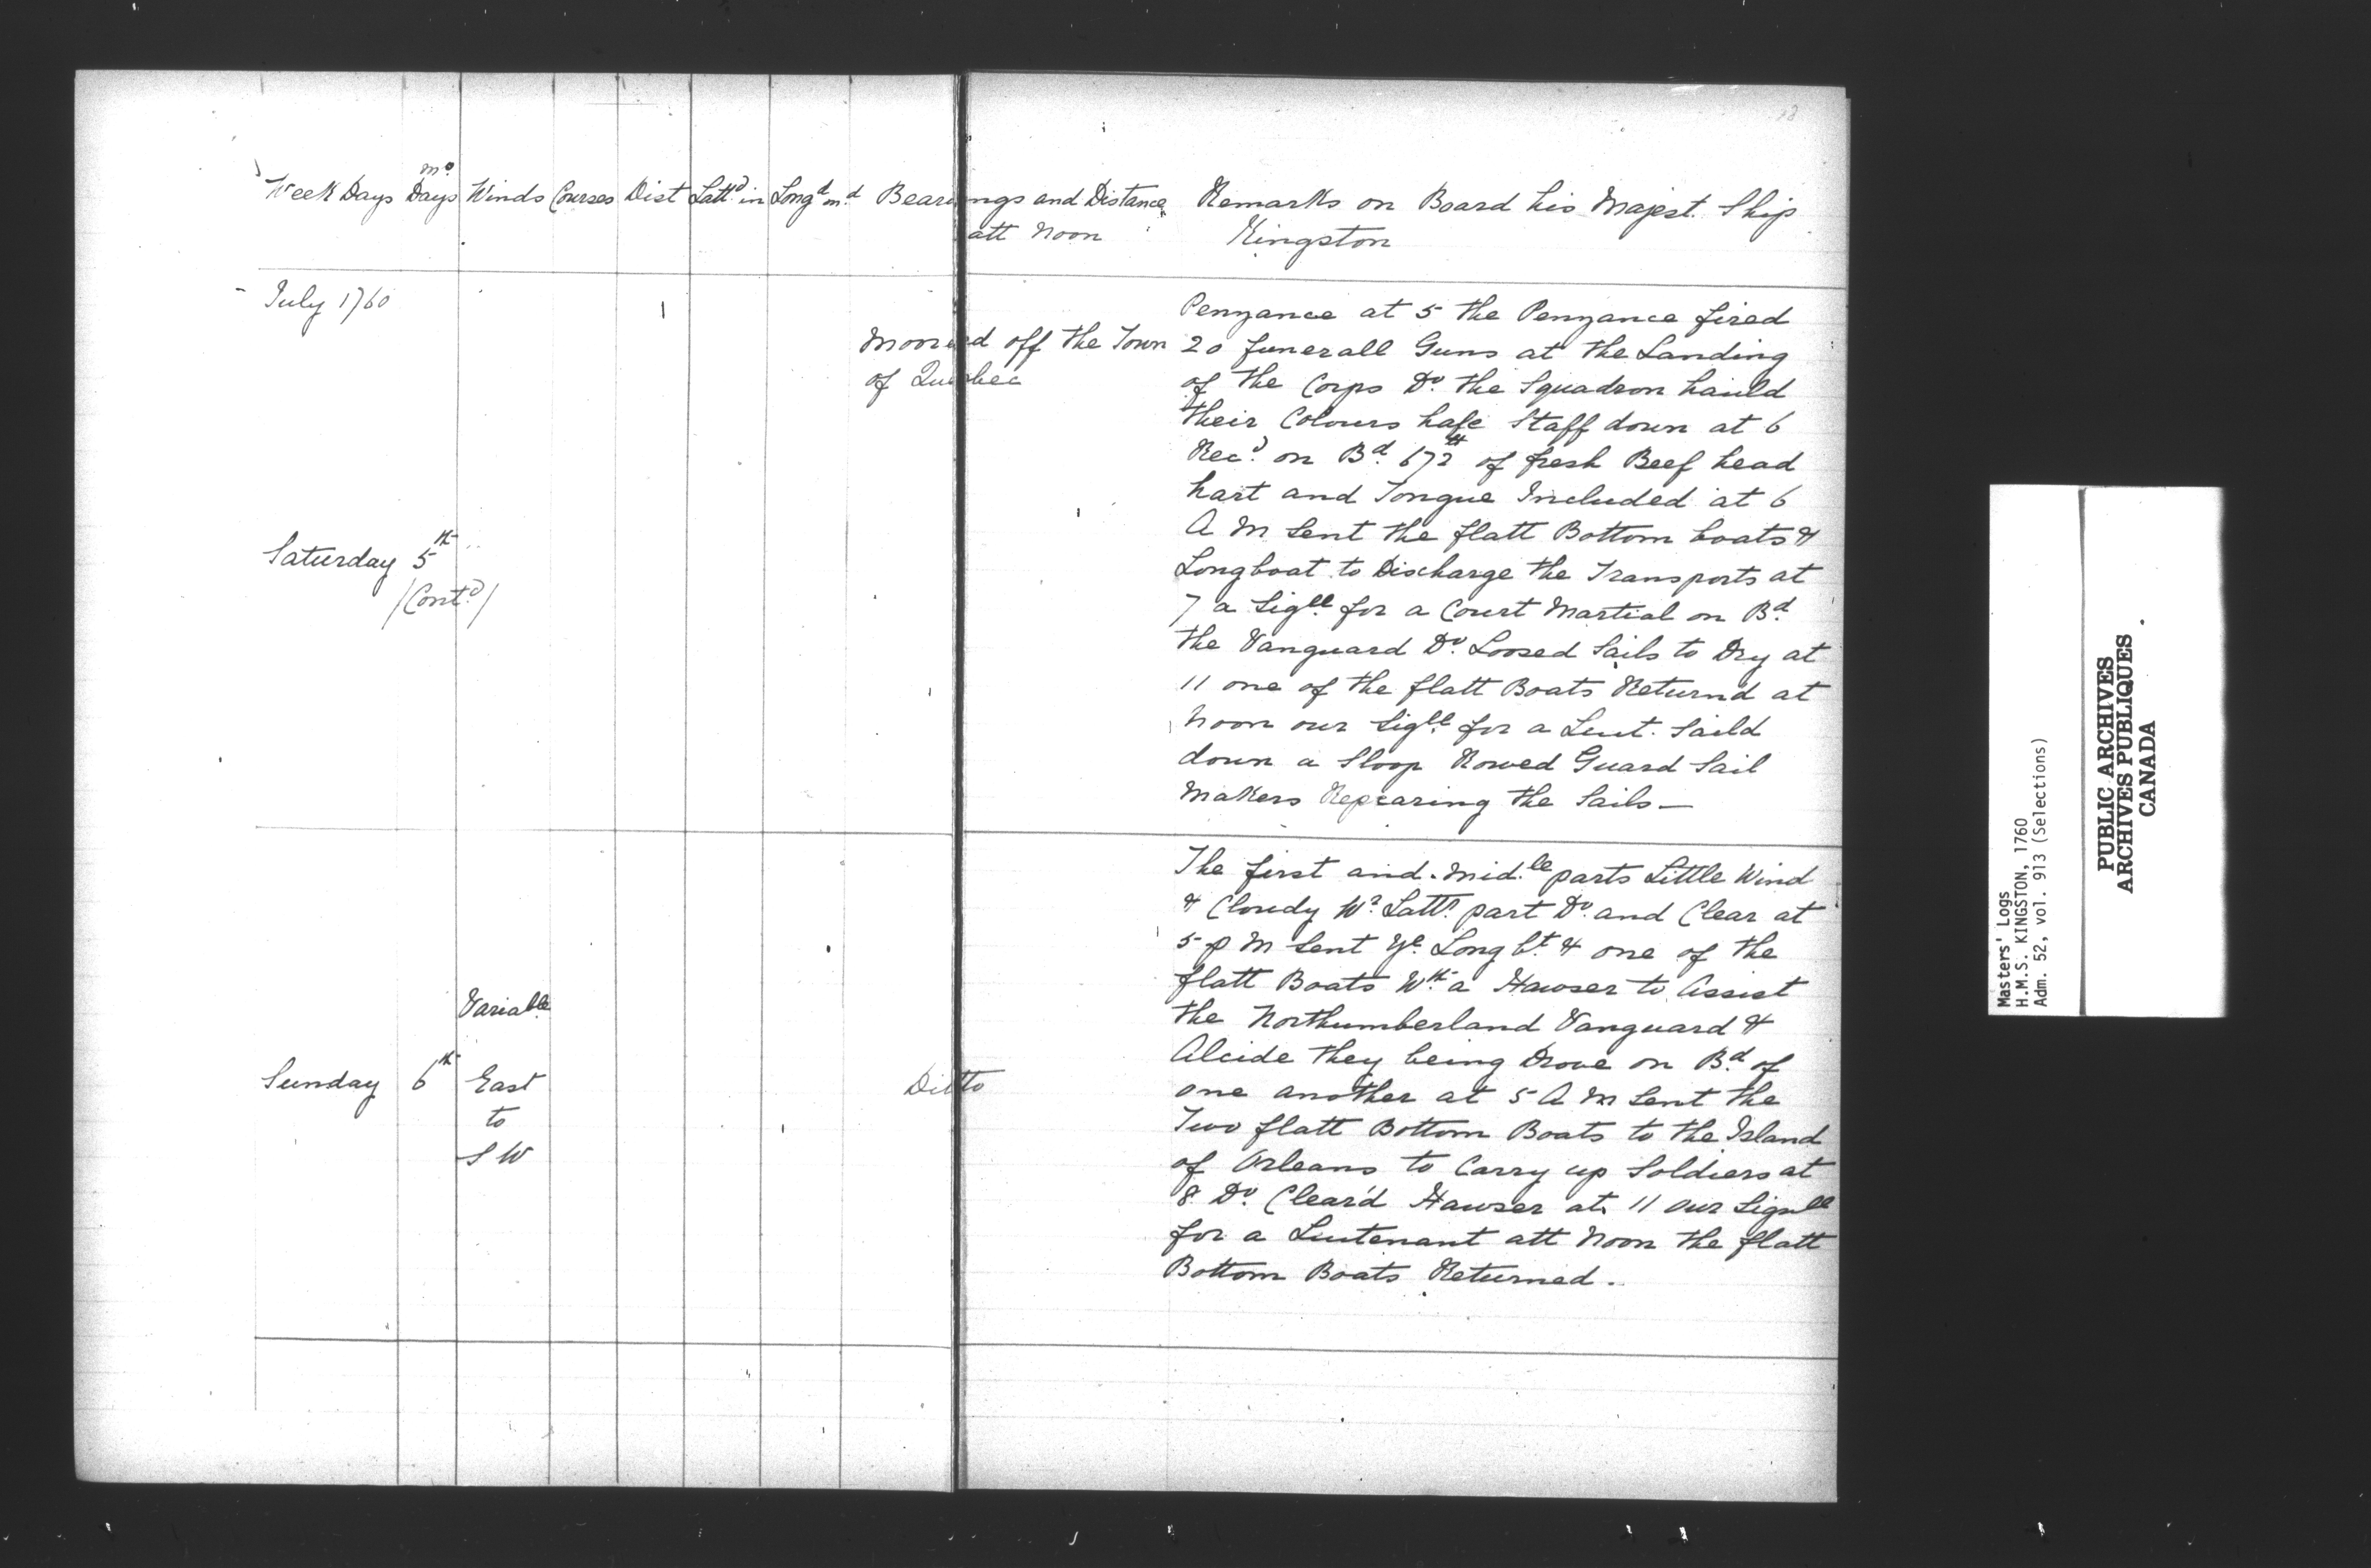 Week Days mo. Days Winds Courses Dist Lattd in Longd in d Bearings and Distance att Noon
Remarks on Board his Majest. Ship
Kingston
July 1760
Moored off the Town
of Quebec
Saturday 5th
/Contd/
Penzance at 5 the Penzance fired
20 funerall Guns at the Landing
of the Corps Do. the Squadron hauld
their Colours hafe Staff down at 6
Recd. on Bd. 672 lb of fresh Beef head
hart and Tongue Included at 6
A M Sent the flatt Bottom boats &
Longboat to Discharge the Transports at
7 a Sigll. for a Court Martial on Bd.
the Vanguard Do. Loosed Sails to Dry at
11 one of the flatt Boats Returnd at
Noon our Sigll. for a Leut. Saild
down a Sloop Rowed Guard Sail
Makers Repearing the Sails—
Sunday 6th
Variable
East
to
S W
Ditto
The first and Mid.le parts Little Wind
& Cloudy Wr. Lattr. part Do. and Clear at
5 P M Sent ye. Long bt. & one of the
flatt Boats Wth. a Hawser to Assist
the Northumberland Vanguard &
Alcide they being Drove on Bd. of
one another at 5 A M Sent the
Two flatt Bottom Boats to the Island
of Orleans to Carry up Soldiers at
8 Do. Clear'd Hawser at 11 our Signll
for a Leutenant att Noon the flatt
Bottom Boats Returned.
Masters' Logs
H.M.S. KINGSTON, 1760
Adm. 52, vol. 913 (Selections)
PUBLIC ARCHIVES
ARCHIVES PUBLIQUES
CANADA